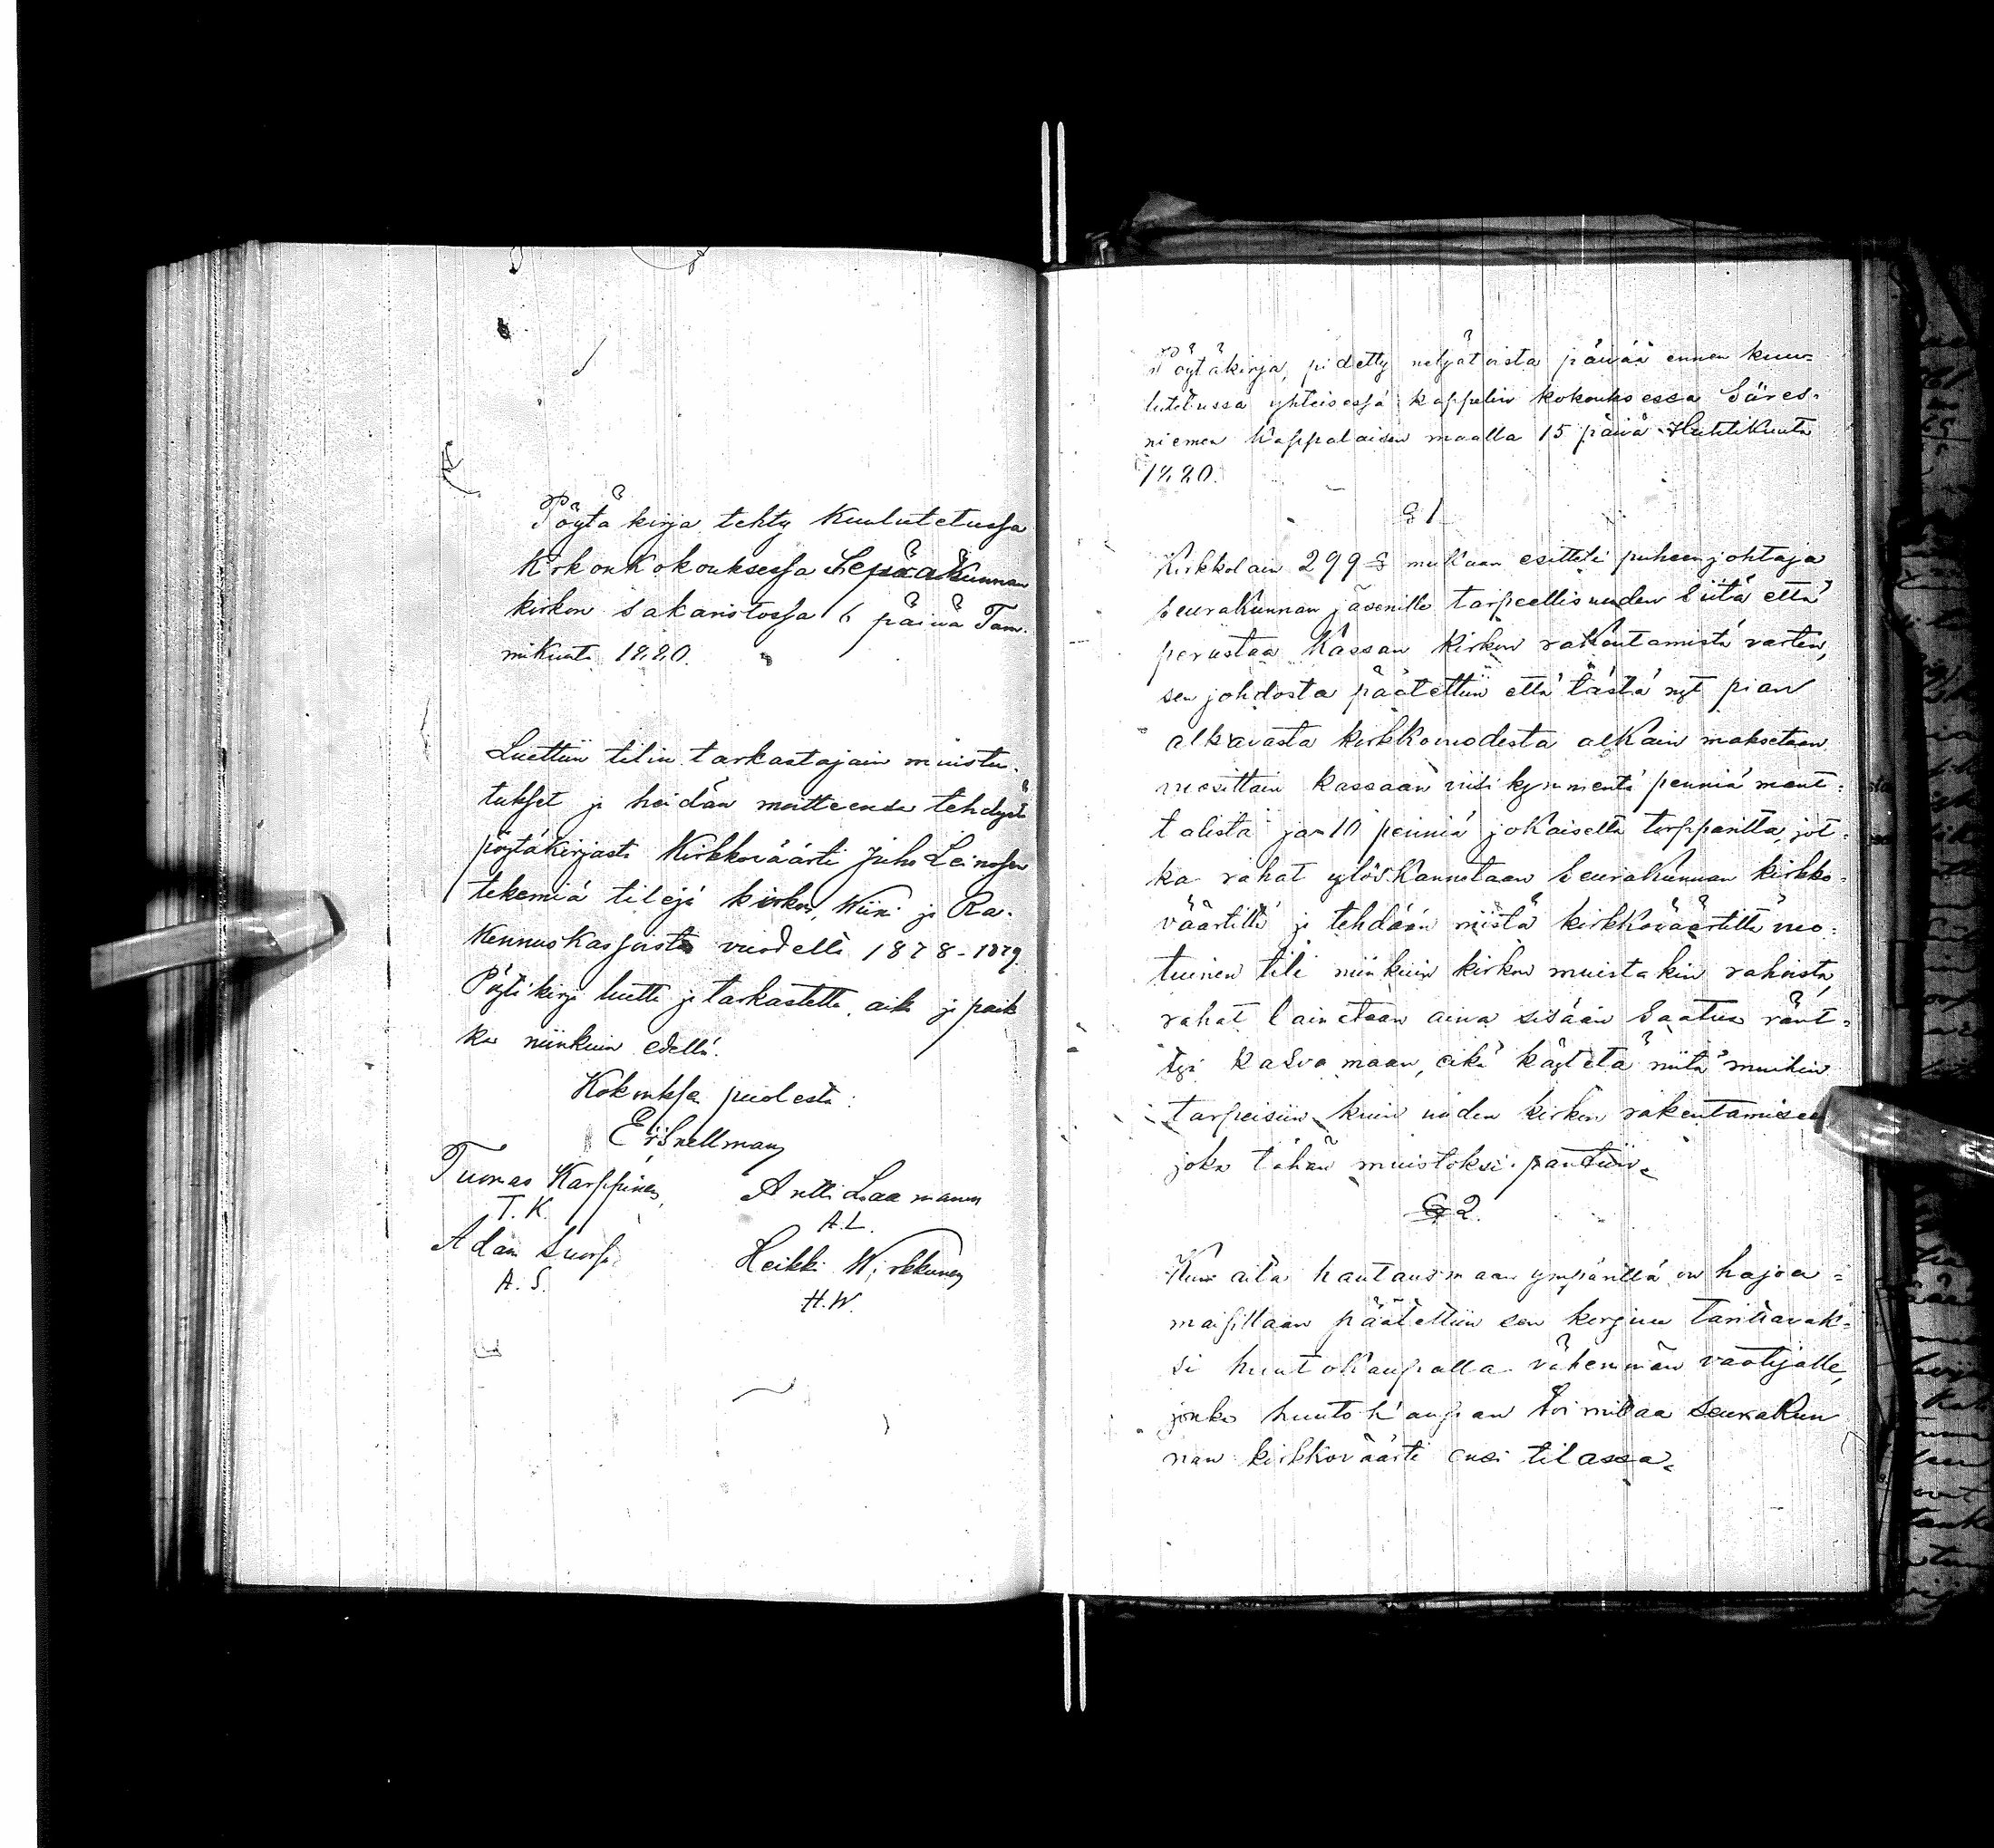 Pöytäkirja tehty Kuulutetussa
Kirkonkokouksessa Sepaakunnan
kirkon sakaristossa 6 päivä Tam-
mikuuta 1880.
Luettiin tilin tarkastajain muistu-
tukset ja heidän meitteensä tehdystä
pöytäkirjasta Kirkkoväärti Juho Leinosen
tekemiä tilejä kirkon, Wiini ja Ra-
kennuskassasta vuodelle 1878-1879.
Pöytäkirja luettu ja tarkastettu, aika ja paik
ka niinkuin edellä.
Kokouksen puolesta:
Snellman
Tuomas Karppinen
T. K.
Antti Laamanen
A. L.
Adam Suorsa
A. S.
Heikki Wirkkunen
H. W.
Pöytäkirja, pidetty neljätoista päivää ennen kuu-
lutetussa yhteisessä kappelin kokouksessa Säres-
niemen Kappalaisen maalla 15 päivä Huhtikuuta
1880.
§ 1
Kirkkolain 299 § mukaan esitteli puheenjohtaja
seurakunnan jäsenille tarpeellisuuden siitä että
perustaa Kassan kirkon rakentamista varten,
sen johdosta päätettiin että tästä nyt pian
alkavasta kirkkovuodesta alkain maksetaan
vuosittain kassaan viisikymmentä penniä mant-
talista ja 10 penniä jokaiselta torpparilta, jot-
ka rahat ylöskannetaan Seurakunnan kirkko-
väärtiltä ja tehdään niistä kirkkoväärtiltä vuo-
tuinen tili niinkuin kirkon muistakin rahoista,
rahat lainataan aina sisään saatua ränt-
tyä kasvamaan, eikä käytetä niitä muihin
tarpeisiin kuin uuden kirkon rakentamiseen
joka tähän muistoksi pantiin.
§ 2.
Kun aita hautausmaan ympärillä on hajoa-
maisillaan päätettiin sen korjuu tarittavak-
si huutokaupalla vähemmän vaatijalle,
jonka huutokaupan toimittaa Seurakun
nan kirkkoväärti ensi tilassa.